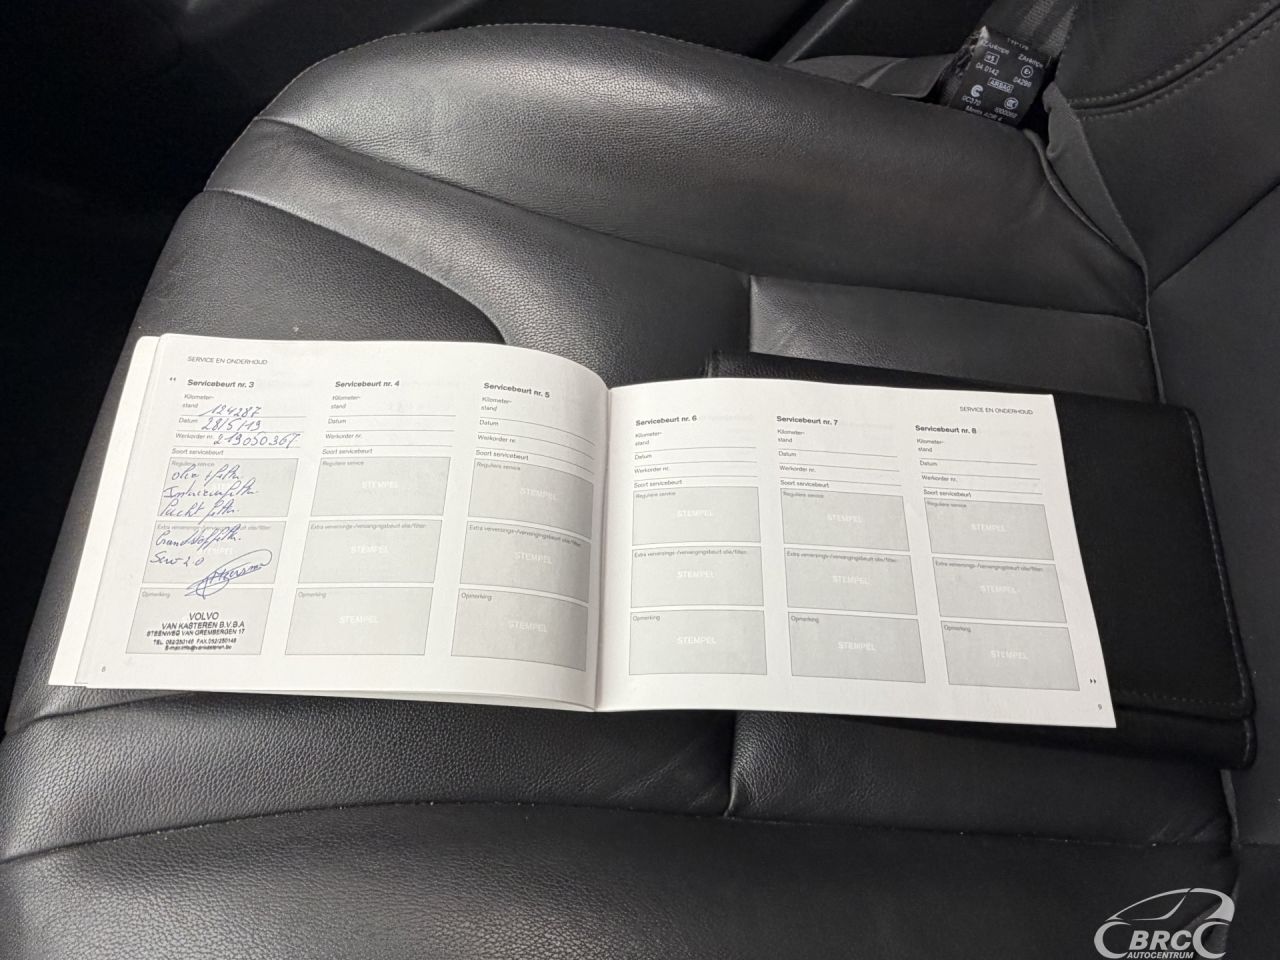 SERVICE EN ONDERHOUD
Servicebeurt nr. 3
Kilometer-
stand 124287
Datum 28/5/19
Werkorder nr. 219050367
Soort servicebeurt
Reguliere service
Extra verversings-/vervangingsbeurt olie/filter:
Opmerking
VOLVO
VAN KASTEREN B.V.B.A
STEENWEG VAN GREMBERGEN 17
TEL. 052/250146 FAX.052/250148
8
Servicebeurt nr. 4
Kilometer-
stand
Datum
Werkorder nr.
Soort servicebeurt
Reguliere service
STEMPEL
Extra verversings-/vervangingsbeurt olie/filter:
STEMPEL
Opmerking
STEMPEL
Servicebeurt nr. 5
Kilometer-
stand
Datum
Werkorder nr.
Soort servicebeurt
Reguliere service
STEMPEL
Extra verversings-/vervangingsbeurt olie/filter:
STEMPEL
Opmerking
STEMPEL
SERVICE EN ONDERHOUD
Servicebeurt nr. 6
Kilometer-
stand
Datum
Werkorder nr.
Soort servicebeurt
Reguliere service
STEMPEL
Extra verversings-/vervangingsbeurt olie/filter:
STEMPEL
Opmerking
STEMPEL
Servicebeurt nr. 7
Kilometer-
stand
Datum
Werkorder nr.
Soort servicebeurt
Reguliere service
STEMPEL
Extra verversings-/vervangingsbeurt olie/filter:
STEMPEL
Opmerking
STEMPEL
Servicebeurt nr. 8
Kilometer-
stand
Datum
Werkorder nr.
Soort servicebeurt
Reguliere service
STEMPEL
Extra verversings-/vervangingsbeurt olie/filter:
STEMPEL
Opmerking
STEMPEL
9
04 0142
AIRBAG
BRC
AUTOCENTRUM